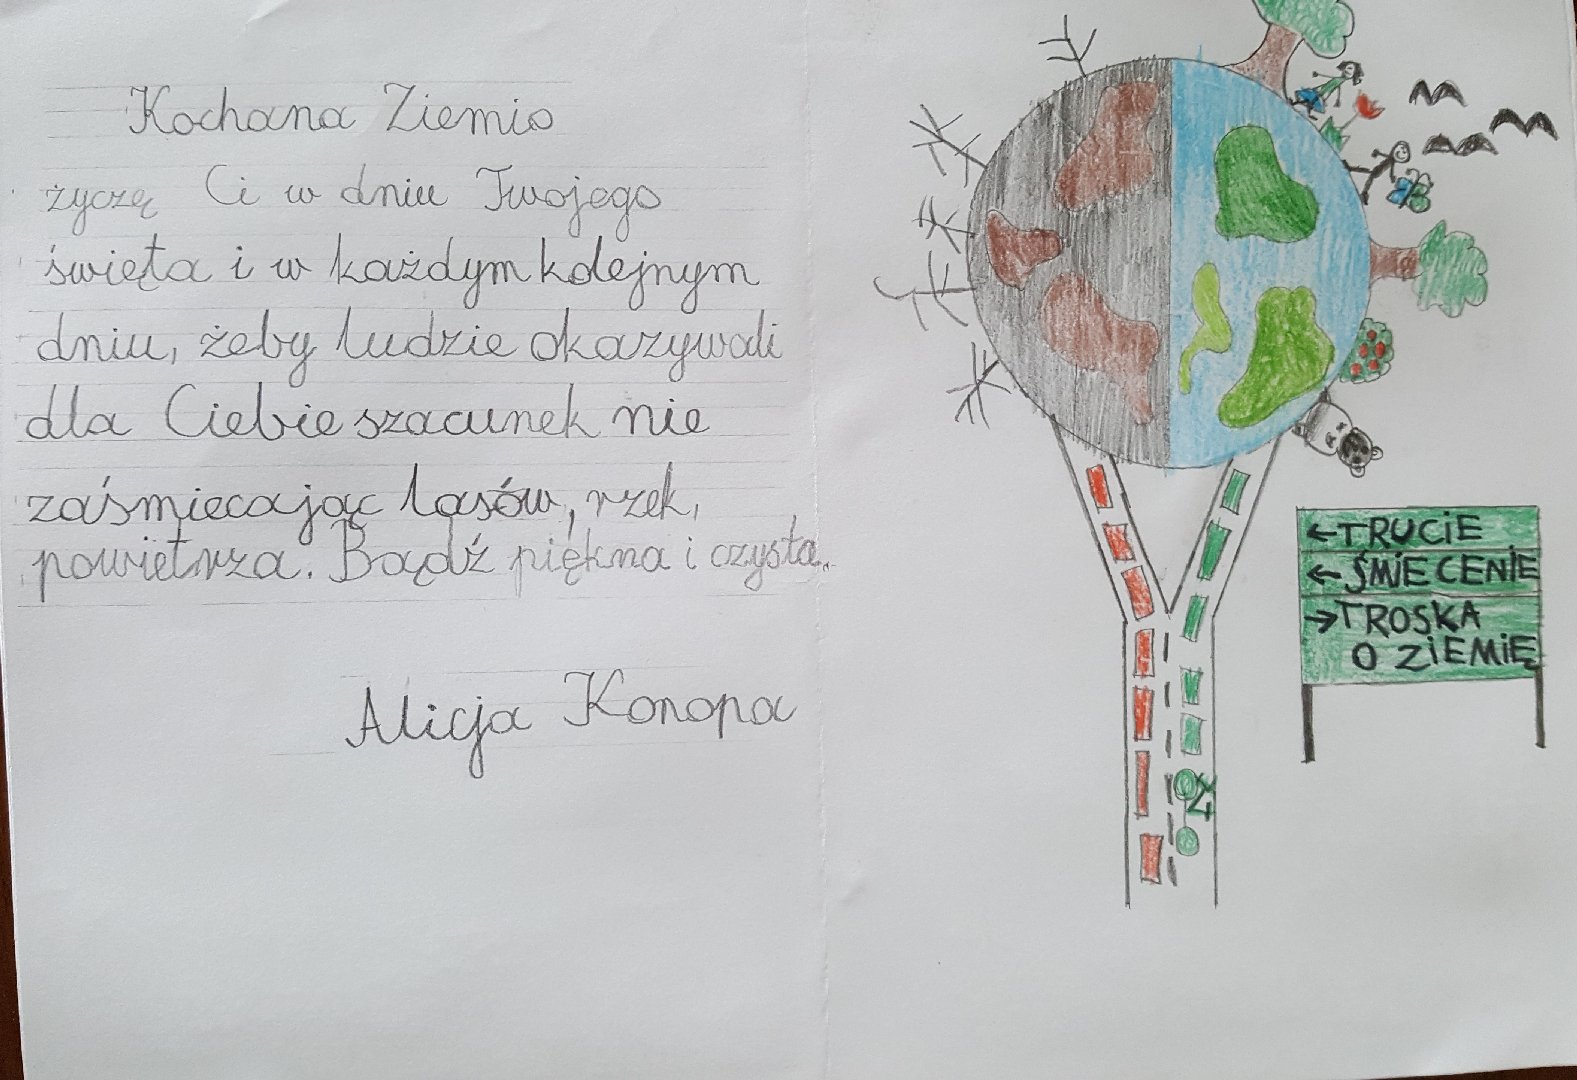 Kochana Ziemio
życzę Ci w dniu Twojego
święta i w każdym kolejnym
dniu, żeby ludzie okazywali
dla Ciebie szacunek nie
zaśmiecając lasów, rzek,
powietrza. Bądź piękna i czysta.
Alicja Konopa
←TRUCIE
←ŚMIECENIE
→TROSKA
O ZIEMIĘ